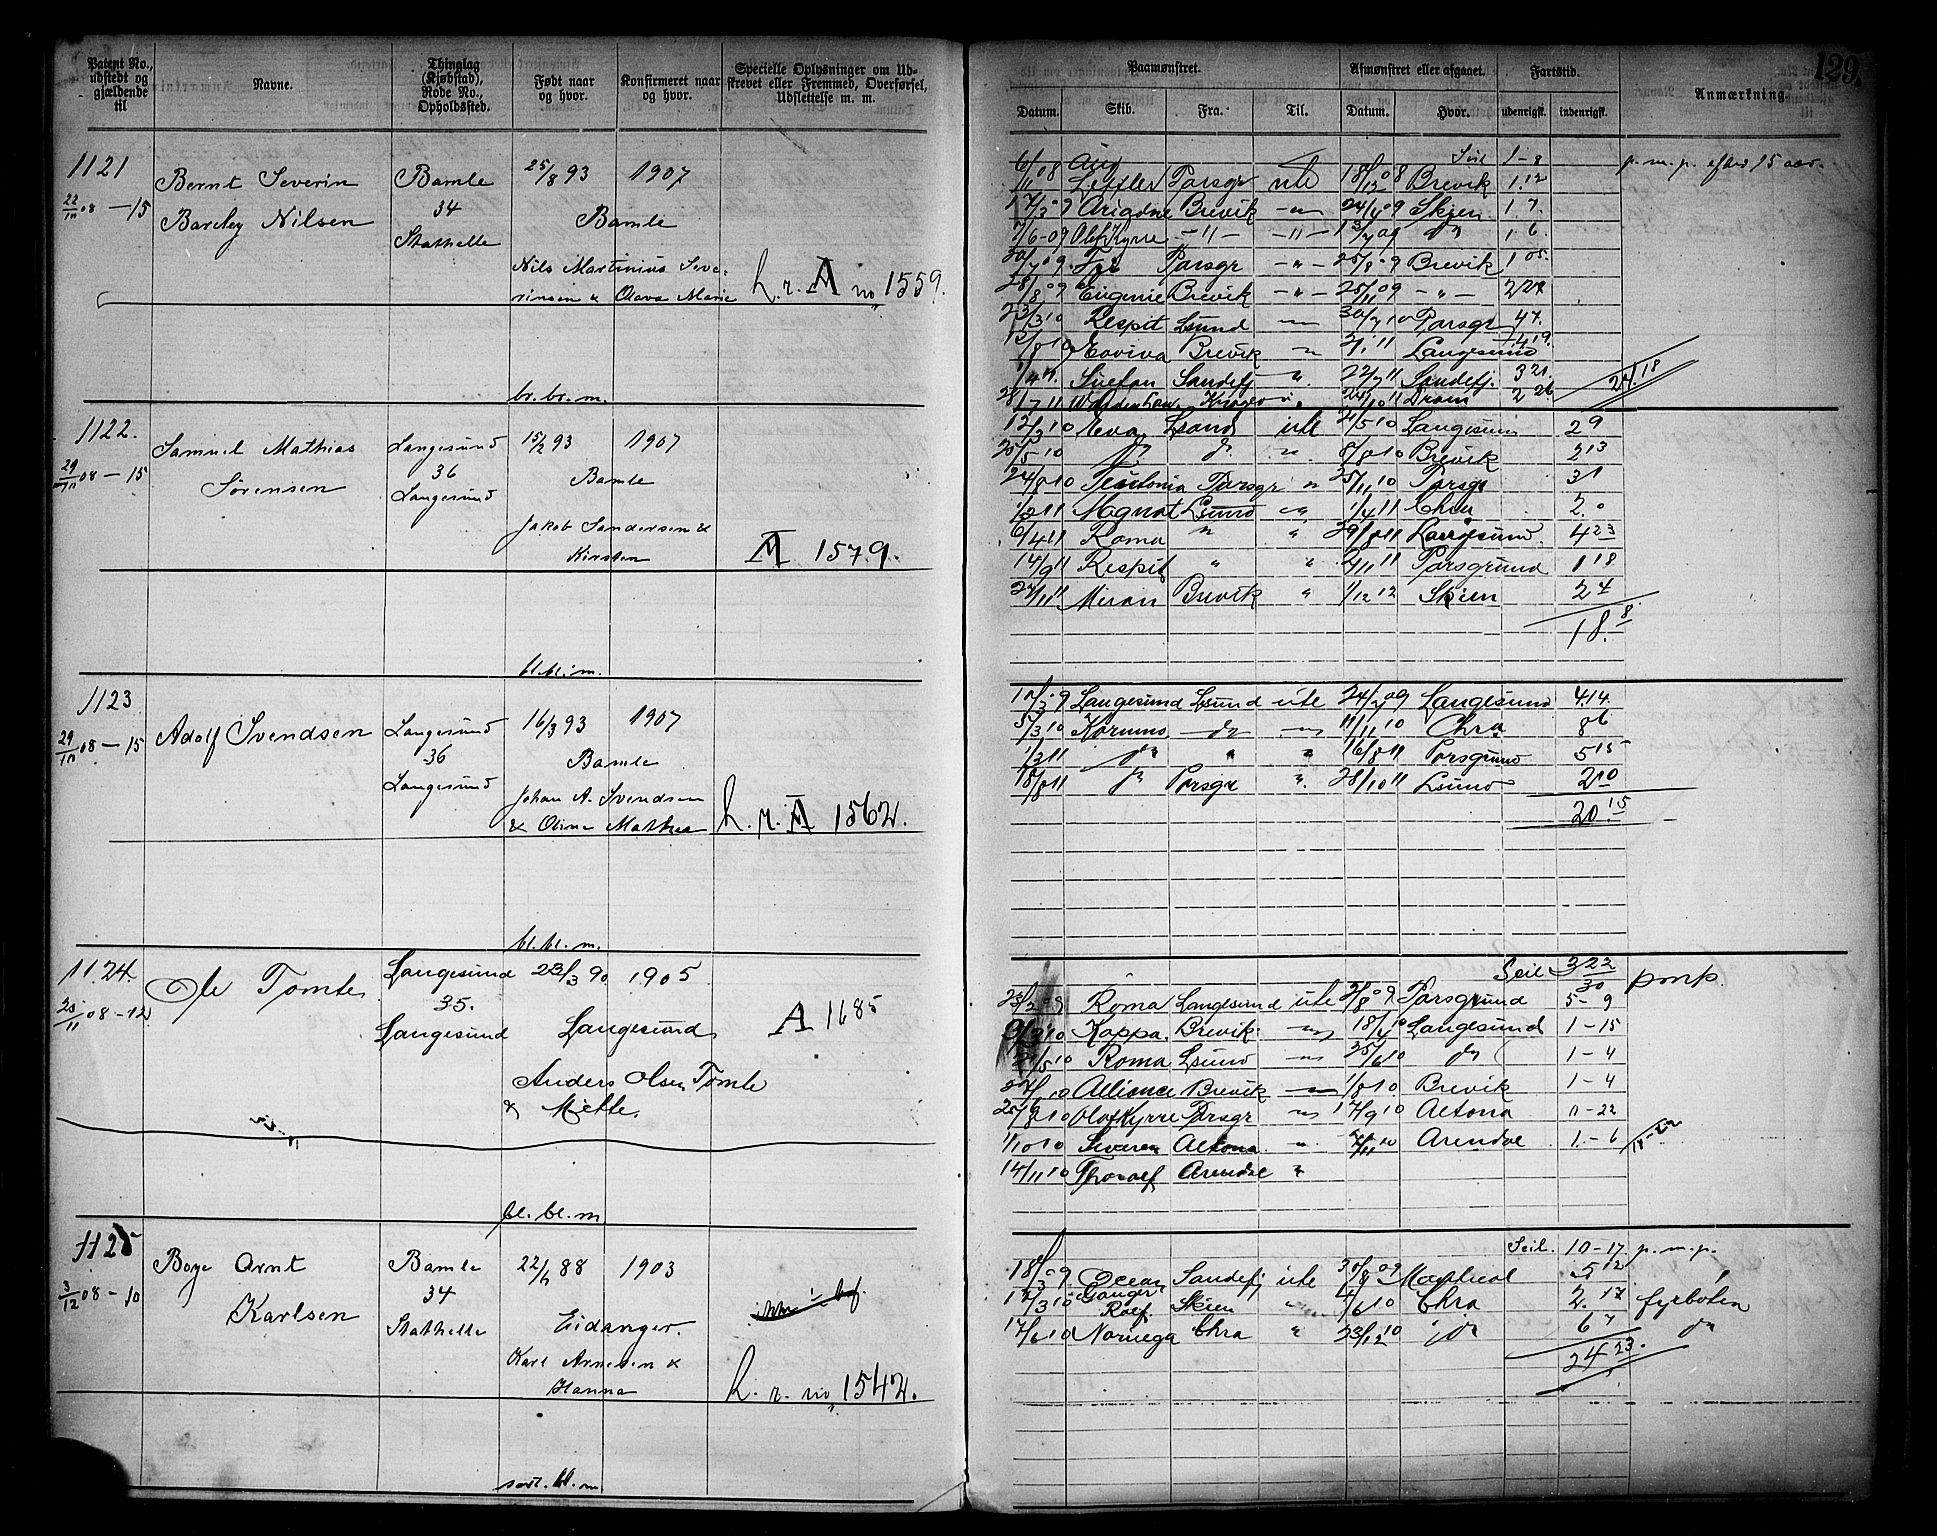 129.
Patent No., udstedt og gjældende til
Navne.
Thinglag (Kjøbstad), Rode No., Opholdssted.
Født naar og hvor.
Konfirmeret naar og hvor.
Specielle Oplysninger om Udskrevet eller Fremmed, Overførsel, Udslettelse m. m.
Paamønstret.
Afmønstret eller afgaaet.
Fartstid.
Anmærkning.
Datum. Skib. Fra: Til. Datum. Hvor. udenrigsk. indenrigsk.
1121
22/11 08 — 15
Bernt Severin
Barclay Nilsen
Bamle
34
Stathelle
25/8 93 1907
Bamle
Nils Martinius Seve-
rinsen & Olava Marie
h. r. A no 1559.
br. br. m.
Seil 1-8 p. m. p. efter 15 aar.
6/11 08 Porsgr ute 18/12 08 Brevik 1.12
17/3 09 Ariadne Brevik -"- 24/4 09 Skien 1.7.
7/6-09 Olaf Kyrre -"- -"- 13/7 09 do 1 6.
Porsgr -"- 25/8 09 Brevik 1 05.
28/8 09 Eugenie Brevik -"- 25/11 09 -"- 2 27
23/3 10 Respit Lsund 30/7 10 Porsgr 4 7.
Brevik Langesund 4 19.
Sandefj " 22/7 11 Sandefj. 3 21.
28/7 11 Kragerø " 24/10 11 Dram 2 26
24.18
1122.
29/11 08 — 15
Samuel Mathias
Sørensen
Langesund
36
Langesund
15/2 93 1907
Bamle
Jakob Sandersen &
Kirsten
A 1579.
bl. bl. m.
12/3 10 Neva Lsund ute 21/5 10 Langesund 2 9
20/5 10 do do " 8/8 10 Brevik 2 13
24/8 10 Teutonia Porsgr " 25/11 10 Porsgr 3 1
Lsund " 1/4 11 Chra 2. 0
9/4 11 Roma " " 29/8 11 Langesund. 4 23
14/9 11 Respit " " Porsgrund 1 18
Brevik " Skien 2 4
18. 8
1123
29/11 08 — 15
Adolf Svendsen
Langesund
36
Langesund
16/3 93 1907
Bamle
Johan A. Svendsen
& Oline Mathea
h. r. A 1562.
bl. bl. m.
10/3 09 Langesund Lsund ute 24/7 09 Langesund 4.14.
5/3 10 do 11/11 10 Chra 8 6
1/3 11 do " " 16/8 11 Porsgrund 5 15
18/8 11 do Porsgr " 28/10 11 Lsund 2 10
20. 15
1124.
25/11 08 - 12
Ole Tomte
Langesund
35.
Langesund
23/3 90 1905
Langesund
Anders Olsen Tomte
& Mette.
A 1685
bl. bl. m.
Seil 3 22/30 pmp.
23/2 09 Roma Langesund ute 21/8 09 Porsgrund 5 - 9
Kappa. Brevik 18/4 10 Langesund 1 - 15
Roma Lsund 25/6 10 do 1 - 4
Alliance Brevik 1/8 10 Brevik 1 - 4
Olaf Kyrre Porsgr 17/9 10 Altona 1 - 22
1/10 10 Altona. " Arendal 1. - 6
14/11 10 Thoralf Arendal "
1125
3/12 08 - 10
Boye Arnt
Karlsen
Bamle
34
Stathelle
22/6 88 1903
Eidanger.
Karl Arnesen &
Hanna
h. r. no 1542.
sort. bl. m.
Seil. 10 - 17. p. m. p.
18/3 09. Ocean Sandefj ute 30/8 09 Montreal 5 12
Ganger Rolf. Skien " 4/6 10 Chra 2. 17 fyrbøter
17/6 10 Noruega Chra " 23/12 10 do 6 7 do
24 23.